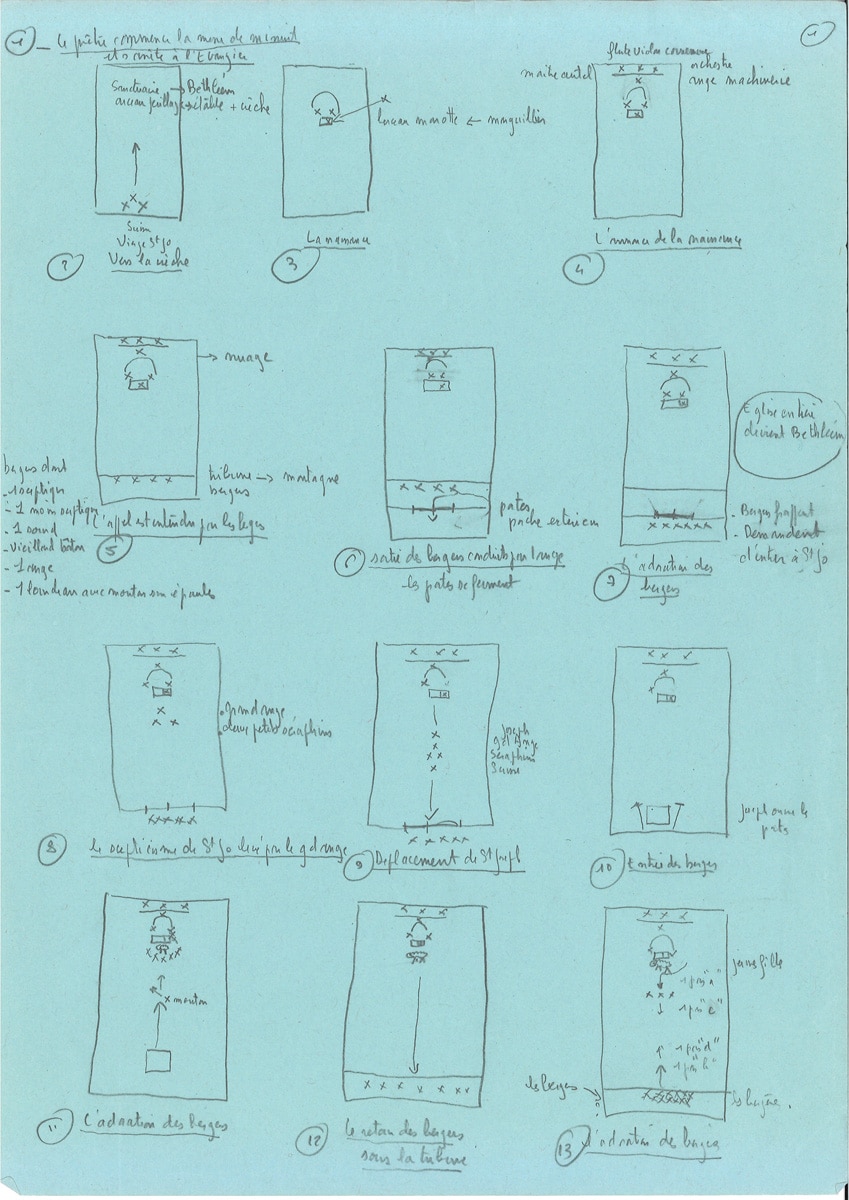 1 _ Le prêtre commence la messe de minuit
et s'arrête à l'Evangile
1
Sanctuaire → Bethléem
étable + crèche
Vierge St Jo
Vers la crèche
2
← marguillier
La naissance
3
maître autel
orchestre
ange machinerie
L'annonce de la naissance
4
→ nuage
tribune → montagne
bergers
bergers dont
- 1 sceptique
- 1 non sceptique
- 1 sourd
- vieillard bâton
- 1 ange
- 1 lourdeau avec mouton sur épaules
L'appel est entendu par les bergers
5
portes
porche extérieur
6
sortie des bergers conduits par l'ange
les portes se ferment
Eglise entière
devient Bethléem
- Bergers frappent
- Demandent
d'entrer à St Jo
7
L'adoration des
bergers
. grand ange
. deux petits séraphins
8
le scepticisme de St Jo levé par le gd ange
Joseph
gd ange
Séraphins
Suisse
9
Déplacement de St Joseph
Joseph ouvre les
portes
10
Entrée des bergers
mouton
11
L'adoration des bergers
12
Le retour des bergers
sous la tribune
jeune fille
les bergers
13
L'adoration des bergers